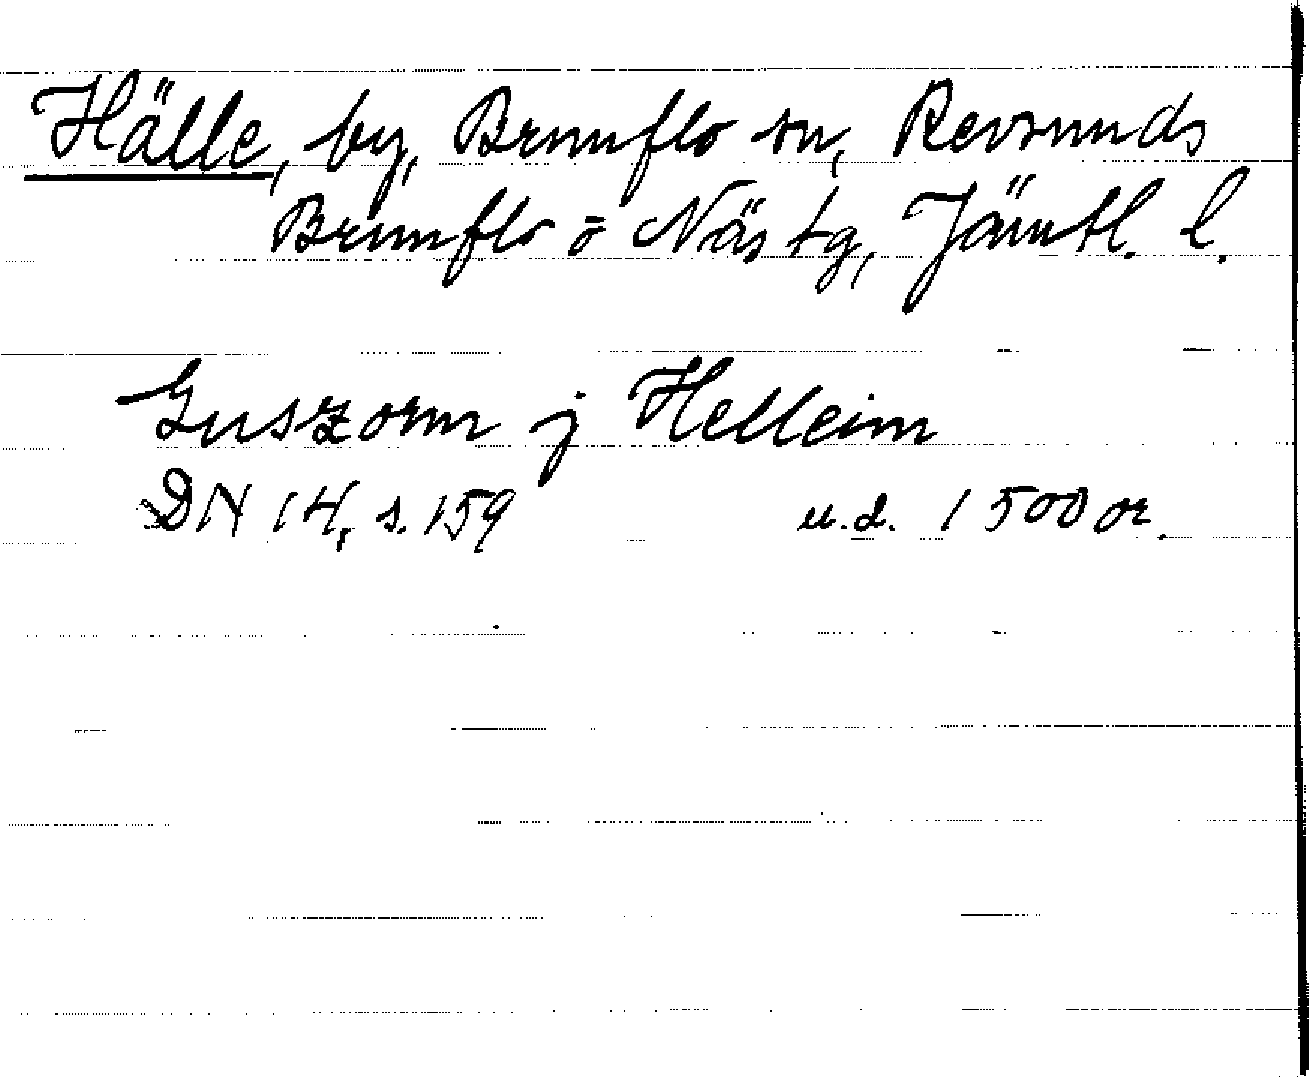 Hälle, by, Brunflo sn, Revsunds
Brunflo ō Näs tg, Jämtl. l.
Guszorm j Helleim
DN 14, s. 159 u.d. 1500 or.